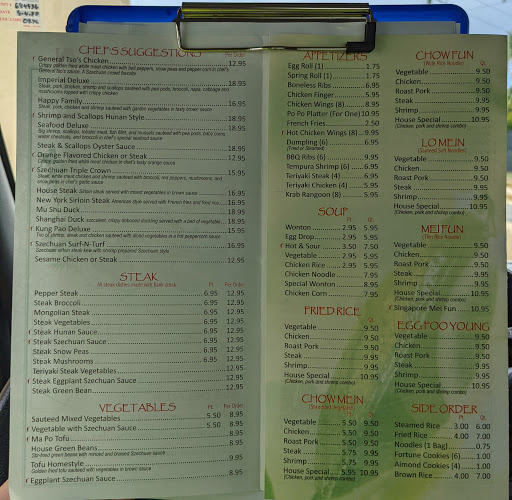 CHEF'S SUGGESTIONS
Per Order
r General Tso's Chicken 12.95
Crispy golden fried white meat chicken with bell peppers, snow peas and pepper corn in chef's
General Tso's sauce. A Szechuan crowd favorite
Imperial Deluxe 18.95
Steak, pork, chicken, shrimp and scallops sauteed with pea pods, broccoli, napa, cabbage and
mushrooms topped with crispy chicken
Happy Family 16.95
Steak, pork, chicken and shrimp sauteed with garden vegetables in tasty brown sauce
r Shrimp and Scallops Hunan Style 18.95
Seafood Deluxe 18.95
Big shrimp, scallops, lobster meat, fish fillet, and mussels sauteed with pea pods, baby corns,
water chestnuts, and broccoli in chef's special seafood sauce
Steak & Scallops Oyster Sauce 18.95
r Orange Flavored Chicken or Steak 12.95
Crispy golden fried white meat chicken in chef's tasty orange sauce
r Szechuan Triple Crown 15.95
Steak, white meat chicken and shrimp sauteed with broccoli, red peppers, mushrooms, and
snow peas in chef's garlic sauce
House Steak Sirloin steak served with mixed vegetables in brown sauce 16.95
New York Sirloin Steak American style served with French fries and fried rice 16.95
Mu Shu Duck 18.95
Shanghai Duck succulent, crispy deboned duckling served with a bed of vegetable 18.95
r Kung Pao Deluxe 15.95
Trio of shrimp, steak and chicken sauteed with diced vegetables in a hot peppercorn sauce
r Szechuan Surf-N-Turf 16.95
Szechuan sirloin steak kew with shrimp prepared Szechuan style
Sesame Chicken or Steak 12.95
STEAK
All steak dishes made with flank steak
Pt. Per Order
Pepper Steak 6.95 12.95
Steak Broccoli 6.95 12.95
Mongolian Steak 6.95 12.95
Steak Vegetables 6.95 12.95
r Steak Hunan Sauce 6.95 12.95
r Steak Szechuan Sauce 6.95 12.95
Steak Snow Peas 6.95 12.95
Steak Mushrooms 6.95 12.95
Teriyaki Steak Vegetables 12.95
r Steak Eggplant Szechuan Sauce 12.95
Steak Green Bean 12.95
VEGETABLES
Pt. Per Order
Sauteed Mixed Vegetables 5.50 8.95
r Vegetable with Szechuan Sauce 5.50 8.95
r Ma Po Tofu 8.95
House Green Beans 8.95
Stir-fried green beans with minced and braised Szechuan sauce
Tofu Homestyle 9.95
Golden fried tofu sauteed with vegetables in brown sauce
r Eggplant Szechuan Sauce 8.95
APPETIZERS
Egg Roll (1) 1.75
Spring Roll (1) 1.75
Boneless Ribs 6.95
Chicken Finger 5.95
Chicken Wings (8) 8.95
Po Po Platter (For One) 10.95
French Fries 2.50
r Hot Chicken Wings (8) 9.95
Dumpling (6) 6.95
(Fried or Steamed)
BBQ Ribs (6) 9.95
Tempura Shrimp (6) 6.95
Teriyaki Steak (4) 6.95
Teriyaki Chicken (4) 5.95
Krab Rangoon (8) 5.95
SOUP
Pt. Qt.
Wonton 2.95 5.95
Egg Drop 2.95 5.95
r Hot & Sour 3.50 7.50
Vegetable 2.95 5.95
Chicken Rice 2.95 5.95
Chicken Noodle 7.95
Special Wonton 8.95
Chicken Corn 7.95
FRIED RICE
Qt.
Vegetable 9.50
Chicken 9.50
Roast Pork 9.50
Steak 9.95
Shrimp 9.95
House Special 10.95
(Chicken, pork and shrimp combo)
CHOW MEIN
(Shredded Vegetable)
Pt. Qt.
Vegetable 5.50 9.50
Chicken 5.50 9.50
Roast Pork 5.50 9.50
Steak 5.75 9.95
Shrimp 5.75 9.95
House Special 5.95 10.95
(Chicken, pork and shrimp combo)
CHOW FUN
(Wide Rice Noodle)
Qt.
Vegetable 9.50
Chicken 9.50
Roast Pork 9.50
Steak 9.95
Shrimp 9.95
House Special 10.95
(Chicken, pork and shrimp combo)
LO MEIN
(Sauteed Soft Noodles)
Qt.
Vegetable 9.50
Chicken 9.50
Roast Pork 9.50
Steak 9.95
Shrimp 9.95
House Special 10.95
(Chicken, pork and shrimp combo)
MEI FUN
(Thin Rice Noodle)
Qt.
Vegetable 9.50
Chicken 9.50
Roast Pork 9.50
Steak 9.95
Shrimp 9.95
House Special 10.95
(Chicken, pork and shrimp combo)
r Singapore Mei Fun 10.95
EGG FOO YOUNG
Vegetable 9.50
Chicken 9.50
Roast Pork 9.50
Steak 9.95
Shrimp 9.95
House Special 10.95
(Chicken, pork and shrimp combo)
SIDE ORDER
Pt. Qt.
Steamed Rice 3.00 6.00
Fried Rice 4.00 7.00
Noodles (1 Bag) 0.75
Fortune Cookies (6) 1.00
Almond Cookies (4) 1.00
Brown Rice 4.00 7.00